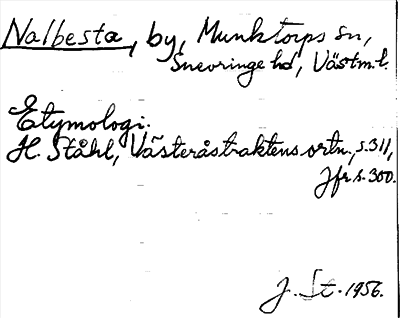 Nalbesta, by, Munktorps sn,
Snevringe hd, Västm.l.
Etymologi:
H. Ståhl, Västeråstraktens ortn., s. 311,
Jfr s. 300.
J. St. 1956.